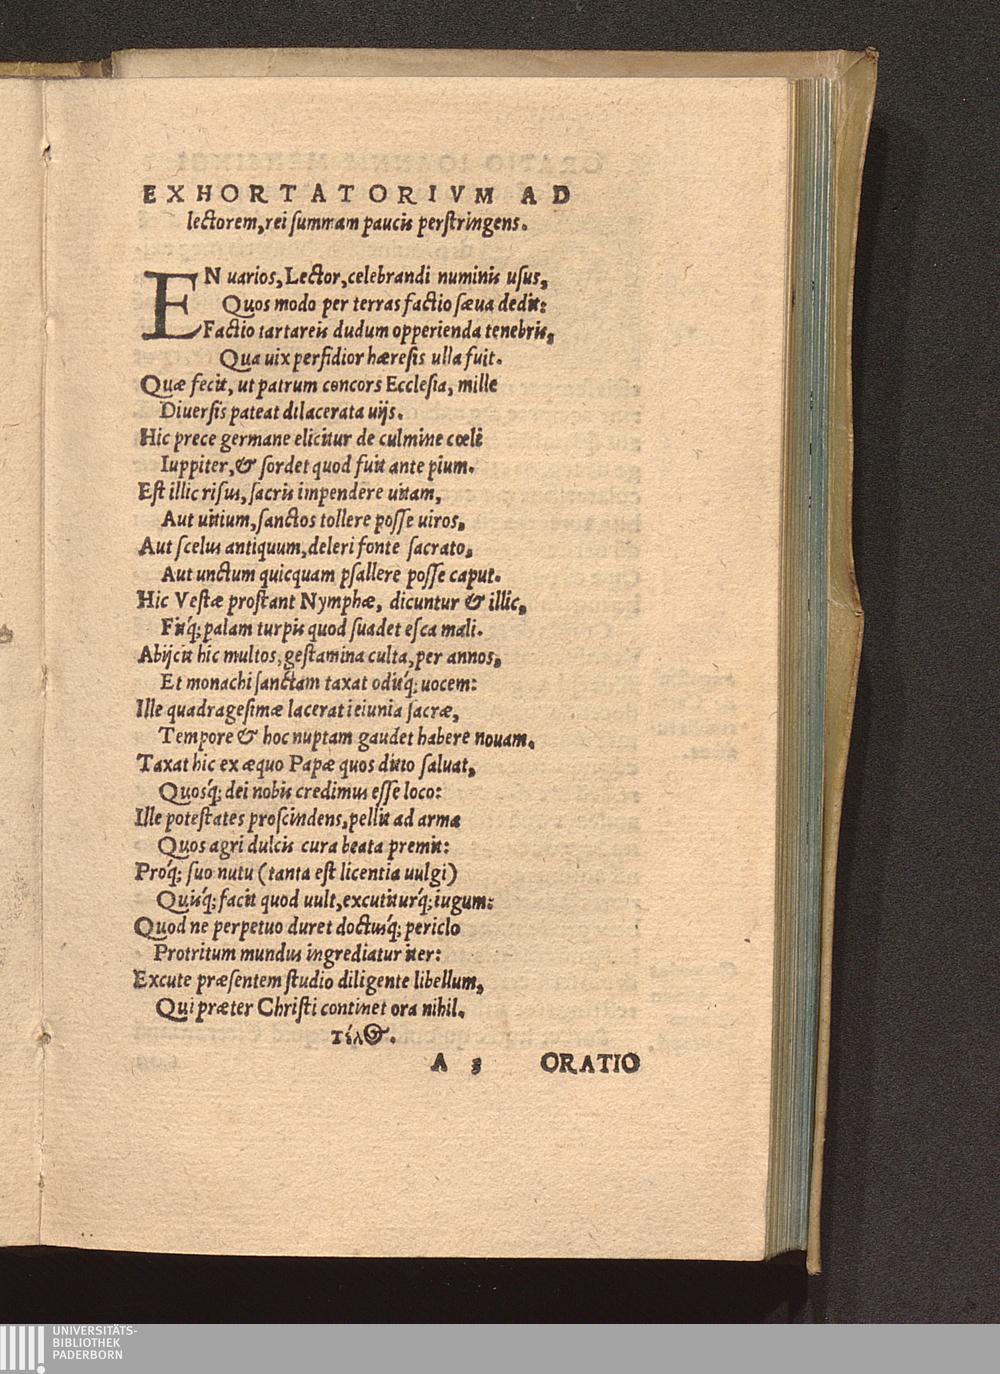 EXHORTATORIVM AD
lectorem, rei summam paucis perstringens.
EN uarios, Lector, celebrandi numinis usus,
Quos modo per terras factio sæua dedit:
Factio tartareis dudum opperienda tenebris,
Qua uix perfidior hæresis ulla fuit.
Quæ fecit, ut patrum concors Ecclesia, mille
Diuersis pateat dilacerata uijs.
Hic prece germane elicitur de culmine cœli
Iuppiter, & sordet quod fuit ante pium.
Est illic risus, sacris impendere uitam,
Aut uitium, sanctos tollere posse uiros,
Aut scelus antiquum, deleri fonte sacrato,
Aut unctum quicquam psallere posse caput.
Hic Vestæ prostant Nymphæ, dicuntur & illic,
Fitq́; palam turpis quod suadet esca mali.
Abijcit hic multos, gestamina culta, per annos,
Et monachi sanctam taxat oditq́; uocem:
Ille quadragesimæ lacerat ieiunia sacræ,
Tempore & hoc nuptam gaudet habere nouam.
Taxat hic ex æquo Papæ quos ditio saluat,
Quosq́; dei nobis credimus esse loco:
Ille potestates proscindens, pellit ad arma
Quos agri dulcis cura beata premit:
Proq́; suo nutu (tanta est licentia uulgi)
Quisq́; facit quod uult, excutiturq́; iugum:
Quod ne perpetuo duret doctusq́; periclo
Protritum mundus ingrediatur iter:
Excute præsentem studio diligente libellum,
Qui præter Christi continet ora nihil.
τέλος.
A 3 ORATIO
UNIVERSITÄTS-
BIBLIOTHEK
PADERBORN